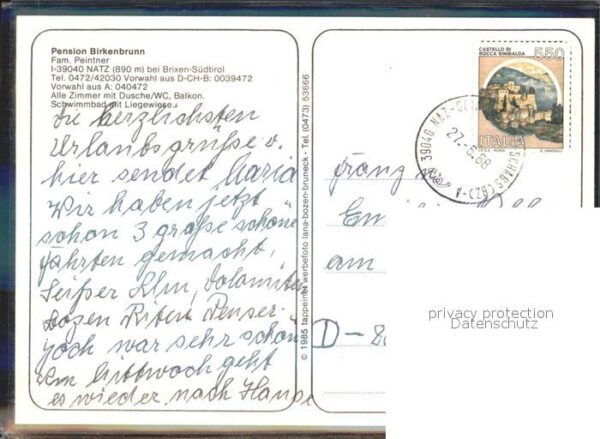 Pension Birkenbrunn
Fam. Peintner
I-39040 NATZ (890 m) bei Brixen-Südtirol
Tel. 0472/42030 Vorwahl aus D-CH-B: 0039472
Vorwahl aus A: 040472
Alle Zimmer mit Dusche/WC, Balkon.
Schwimmbad mit Liegewiese.
Die herzlichsten
Urlaubsgrüße v.
hier sendet Maria
Wir haben jetzt
schon 3 große schöne
fahrten gemacht,
Seißer Alm, Dolomiten
Bozen Riten Penser-
Joch war sehr schön
Am Mittwoch geht
es wieder nach Hause
© 1985 tappeiner werbefoto lana-bozen-bruneck - Tel. (0473) 53666
CASTELLO DI
ROCCA SINIBALDA
550
ITALIA
39040 NAZ-SCHABS (BZ) A
27.6.88
Franz
am
D-8
privacy protection
Datenschutz